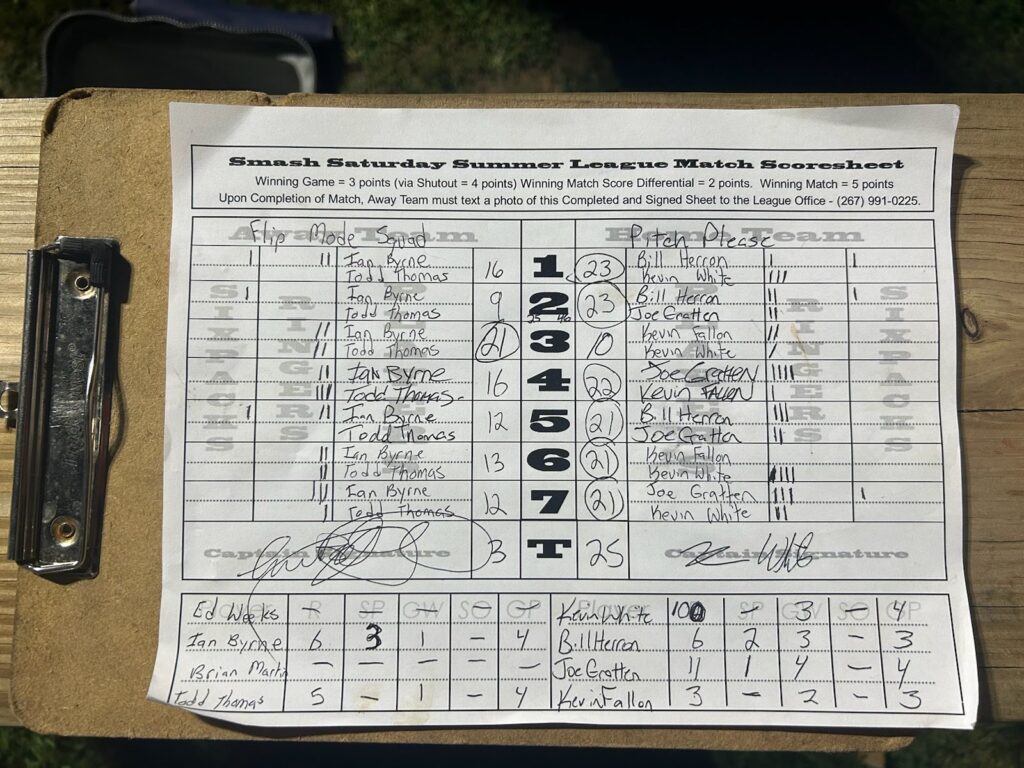 Smash Saturday Summer League Match Scoresheet
Winning Game = 3 points (via Shutout = 4 points) Winning Match Score Differential = 2 points. Winning Match = 5 points
Upon Completion of Match, Away Team must text a photo of this Completed and Signed Sheet to the League Office - (267) 991-0225.
Away Team Home Team
Flip Mode Squad Pitch Please
I II Ian Byrne 16 1 23 Bill Herron I I
Todd Thomas Kevin White III
I Ian Byrne 9 2 23 Bill Herron II I
Todd Thomas Joe Gratten II
II Ian Byrne 21 3 10 Kevin Fallon II
II Todd Thomas Kevin White I
II Ian Byrne 16 4 22 Joe Gratten IIII
III Todd Thomas Kevin Fallon I
I III Ian Byrne 12 5 21 Bill Herron III
Todd Thomas Joe Gratten II
II Ian Byrne 13 6 21 Kevin Fallon
II Todd Thomas Kevin White IIII
III Ian Byrne 12 7 21 Joe Gratten III I
I Todd Thomas Kevin White II
SIXPACKS RINGERS SIXPACKS RINGERS
Captain Signature 3 T 25 Captain Signature
Player R SP GW SO GP Player SP GW SO GP
Ed Weeks – – – – – Kevin White 10 – 3 – 4
Ian Byrne 6 3 1 – 4 Bill Herron 6 2 3 – 3
Brian Martin – – – – – Joe Gratten 11 1 4 – 4
Todd Thomas 5 – 1 – 4 Kevin Fallon 3 – 2 – 3